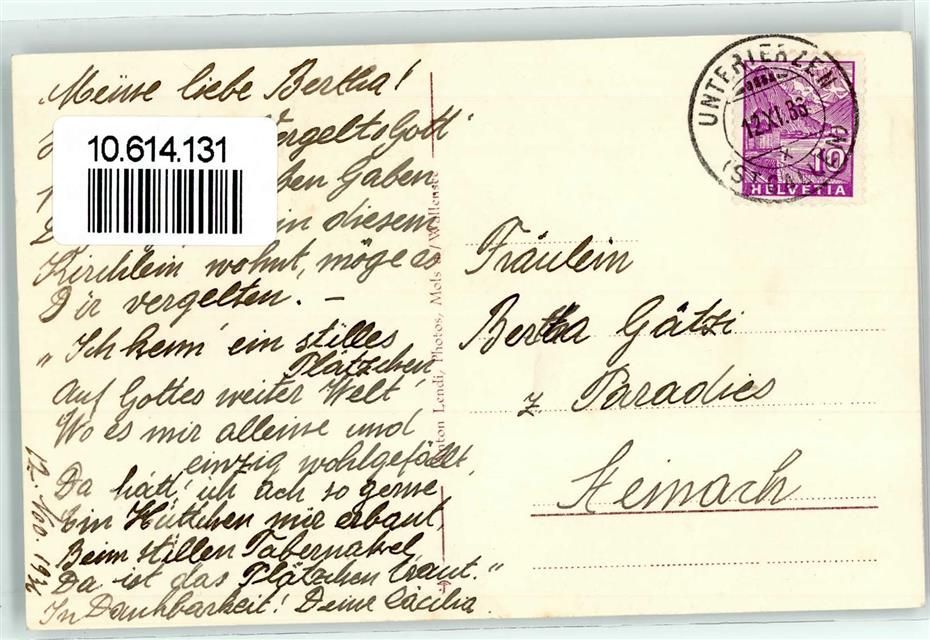 Meine liebe Bertha!
10.614.131
VergeltsGott
Gaben
in diesem
Kirchlein wohnt, möge es
Dir vergelten. –
"Ich kenn' ein stilles
Plätzchen
Auf Gottes weiter Welt
Wo es mir alleine und
einzig wohlgefällt,
Da hätt' ich ach so gerne
Ein Hüttchen mir erbaut,
Beim stillen Tabernakel
Da ist das Plätzchen traut."
In Dankbarkeit! Deine Cäcilia.
12. Nov. 1936
Anton Lendi, Photos, Mols b/Wallenstadt
UNTERTERZEN
12.XI.36
(ST. GALLEN)
10
HELVETIA
Fräulein
Bertha Gätzi
z Paradies